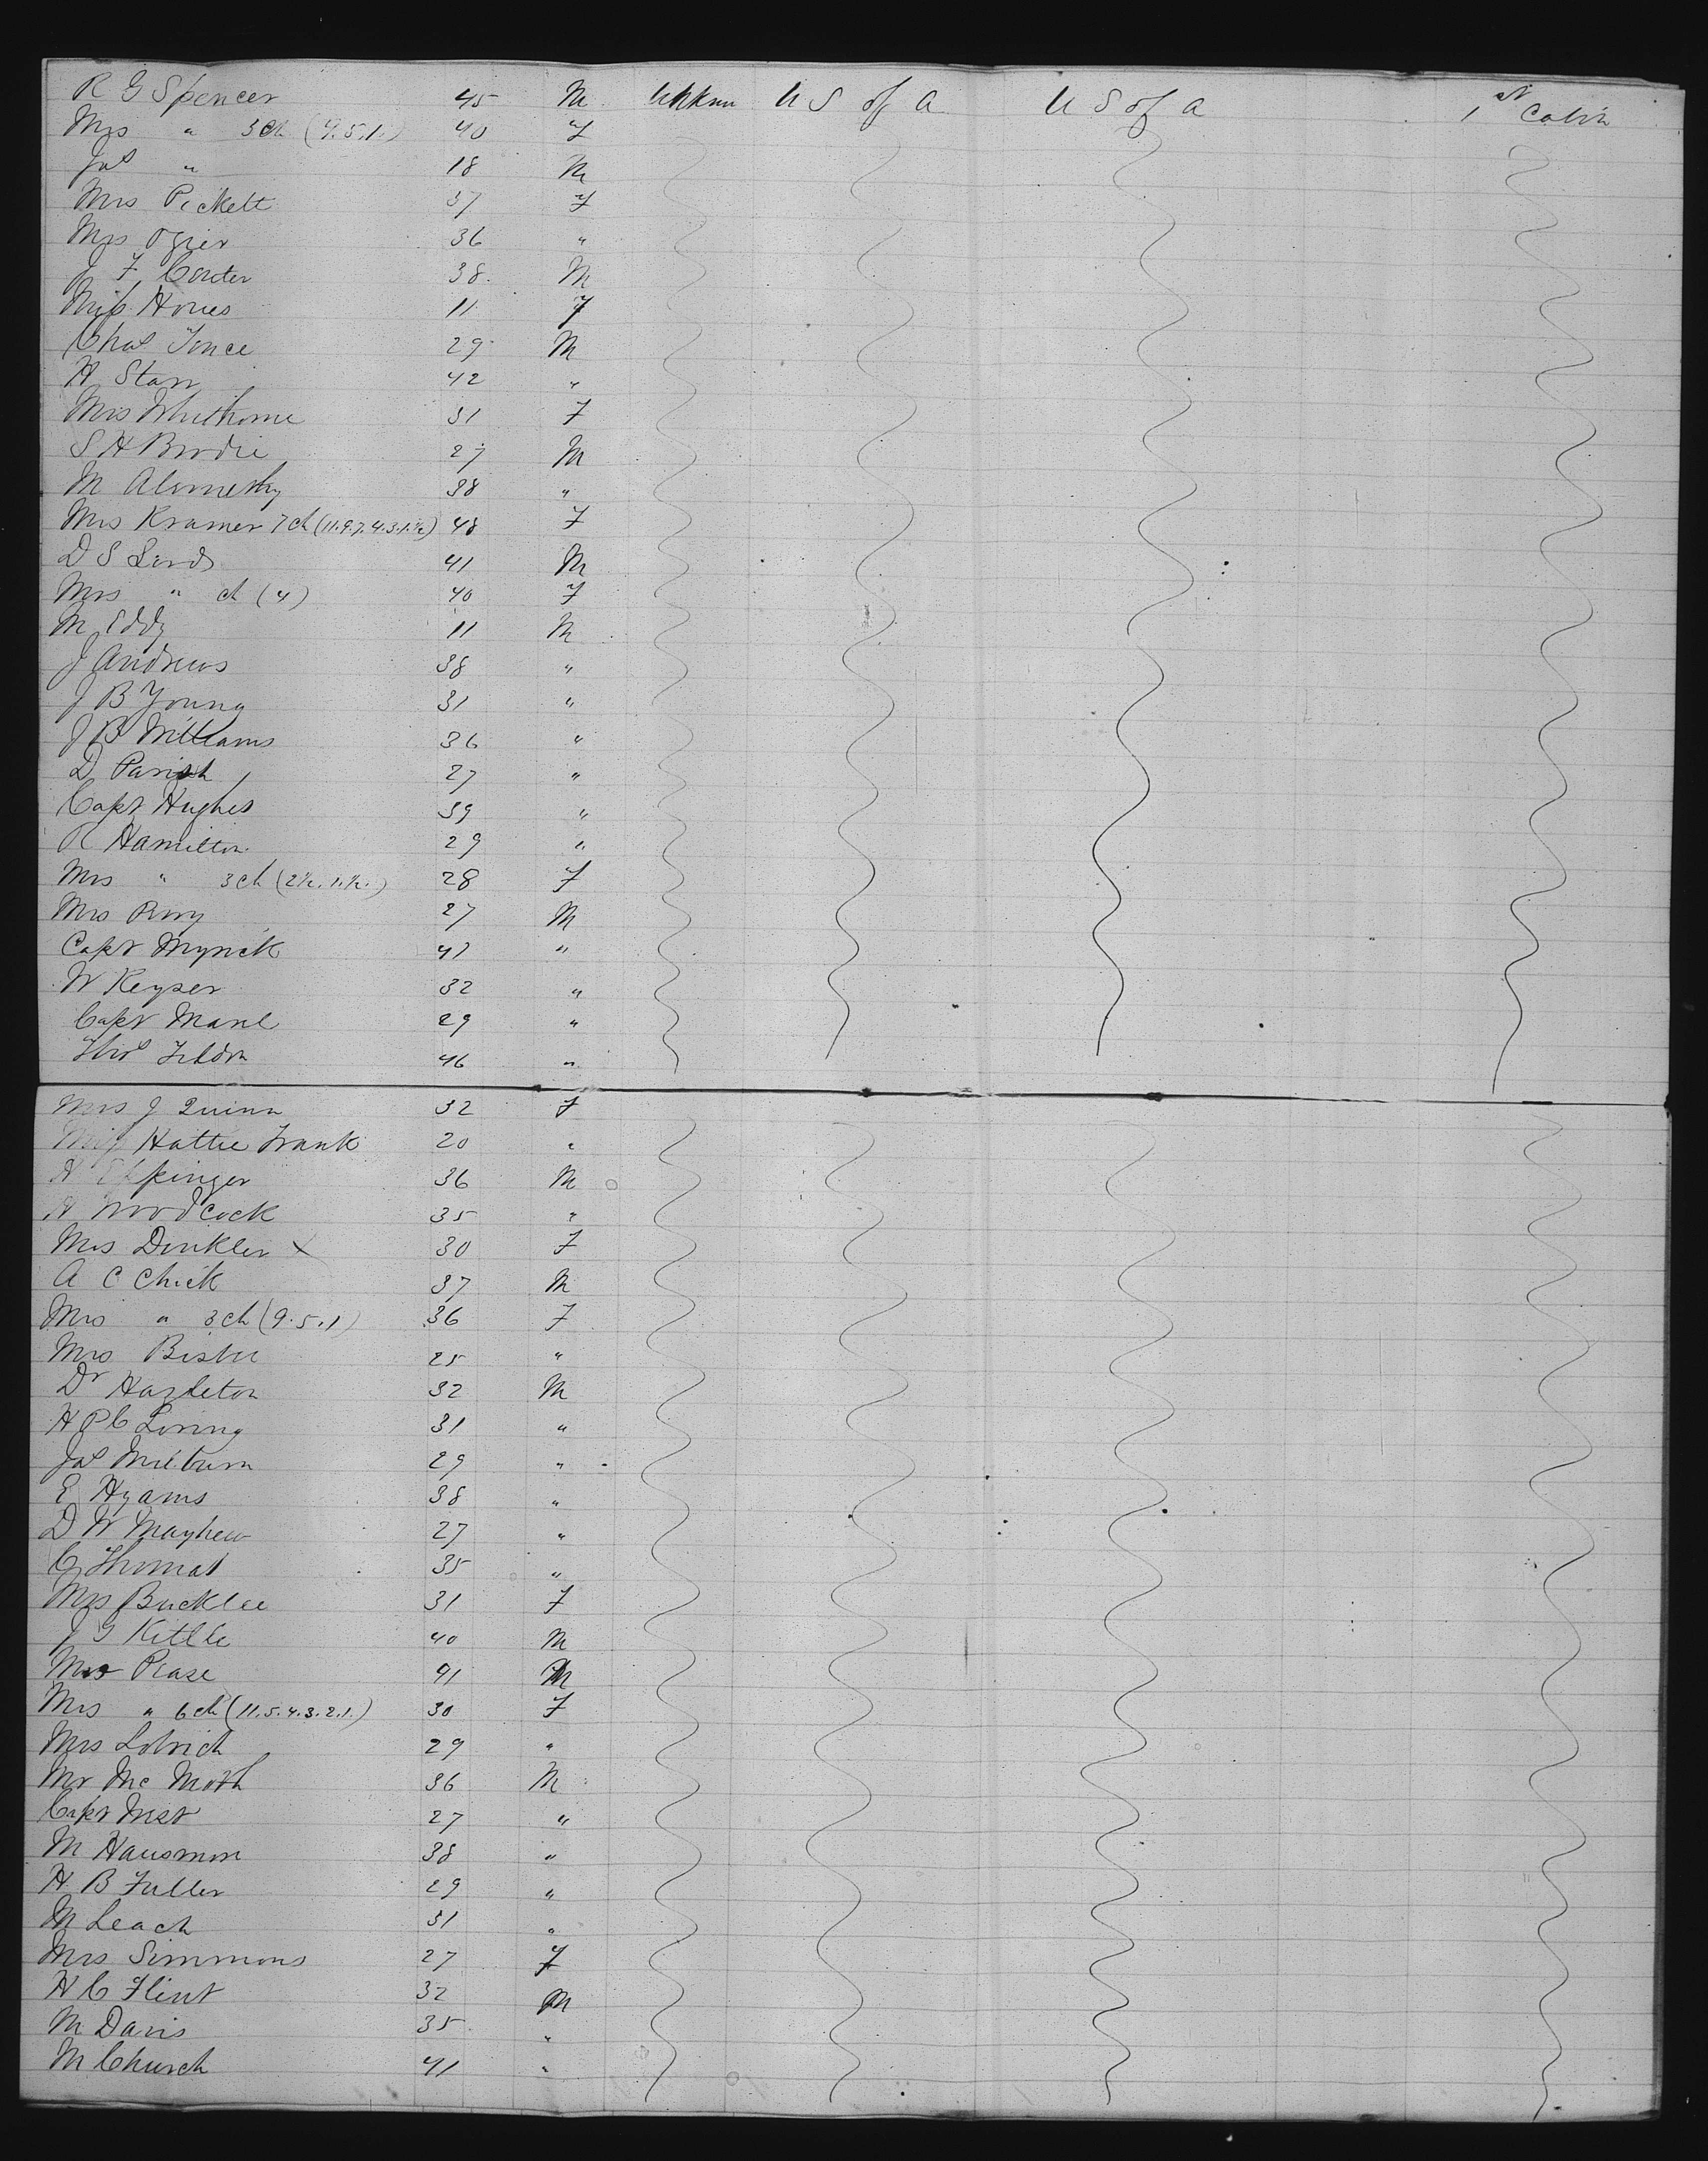 R G Spencer 45 M Unknn U S of A U S of A 1st Cabin
Mrs " 3 ch (9.5.1.) 40 F
Jas " 18 M
Mrs Pickett 37 F
Mrs Ogier 36 "
J F Conter 38 M
Miss Hones 11 F
Chas Yonce 29 M
H Starr 42 "
Mrs Whithorne 31 F
S H Brodie 27 M
M 38 "
Mrs Kramer 7 ch (11.9.7.4.3.1.½) 48 F
D S Lord 41 M
Mrs " ch (4) 40 F
M Eddy 11 M
J Andrews 38 "
J B Young 31 "
J B Williams 36 "
D Parish 27 "
Capt Hughes 39 "
R Hamilton 29 "
Mrs " 3 ch (2½.1.½.) 28 F
Mrs Roy 27 M
Capt Myrick 47 "
W Keyser 32 "
Capt 29 "
Thos 46 "
Mrs J Quinn 32 F
Miss Hattie Frank 20 "
H Eppinger 36 M
H Woodcock 35 "
Mrs Dinkler x 30 F
A C Chick 37 M
Mrs " 3 ch (9.5.1) 36 F
Mrs Bisbee 25 "
Dr Hazleton 32 M
H P C Loring 31 "
Jas Milburn 29 "
E Hyams 38 "
D W Mayhew 27 "
C Thomas 35 "
Mrs Bucklee 31 F
J G Kittle 40 M
Mr Pease 41 M
Mrs " 6 ch (11.5.4.3.2.1.) 30 F
Mrs Lobrich 29 "
Mr Mc Moth 36 M
Capt West 27 "
M Hausman 38 "
H B Fuller 29 "
M Leach 31 "
Mrs Simmons 27 F
H C Flint 32 M
M Davis 35 "
M Church 41 "